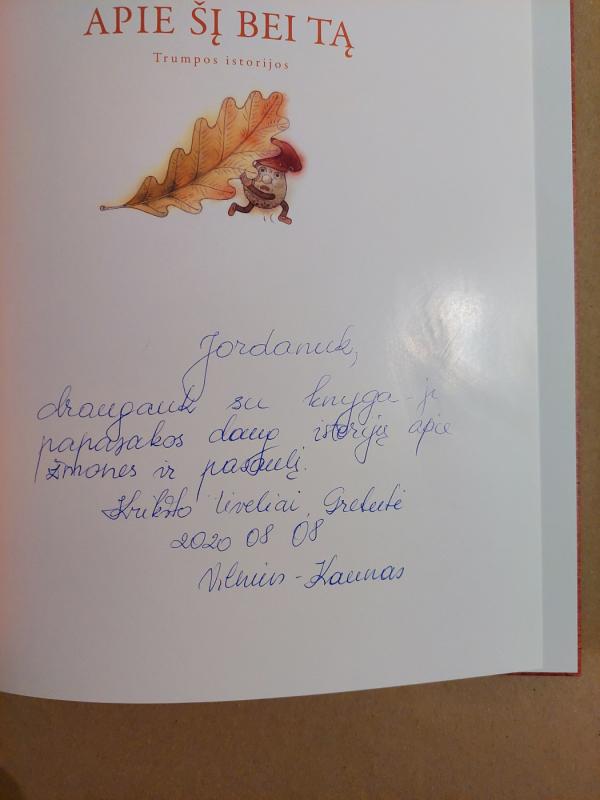 APIE ŠĮ BEI TĄ
Trumpos istorijos
Jordanuk,
draugauk su knyga - ji
papasakos daug istorijų apie
žmones ir pasaulį.
Krikšto tėveliai, Gretutė
2020 08 08
Vilnius - Kaunas